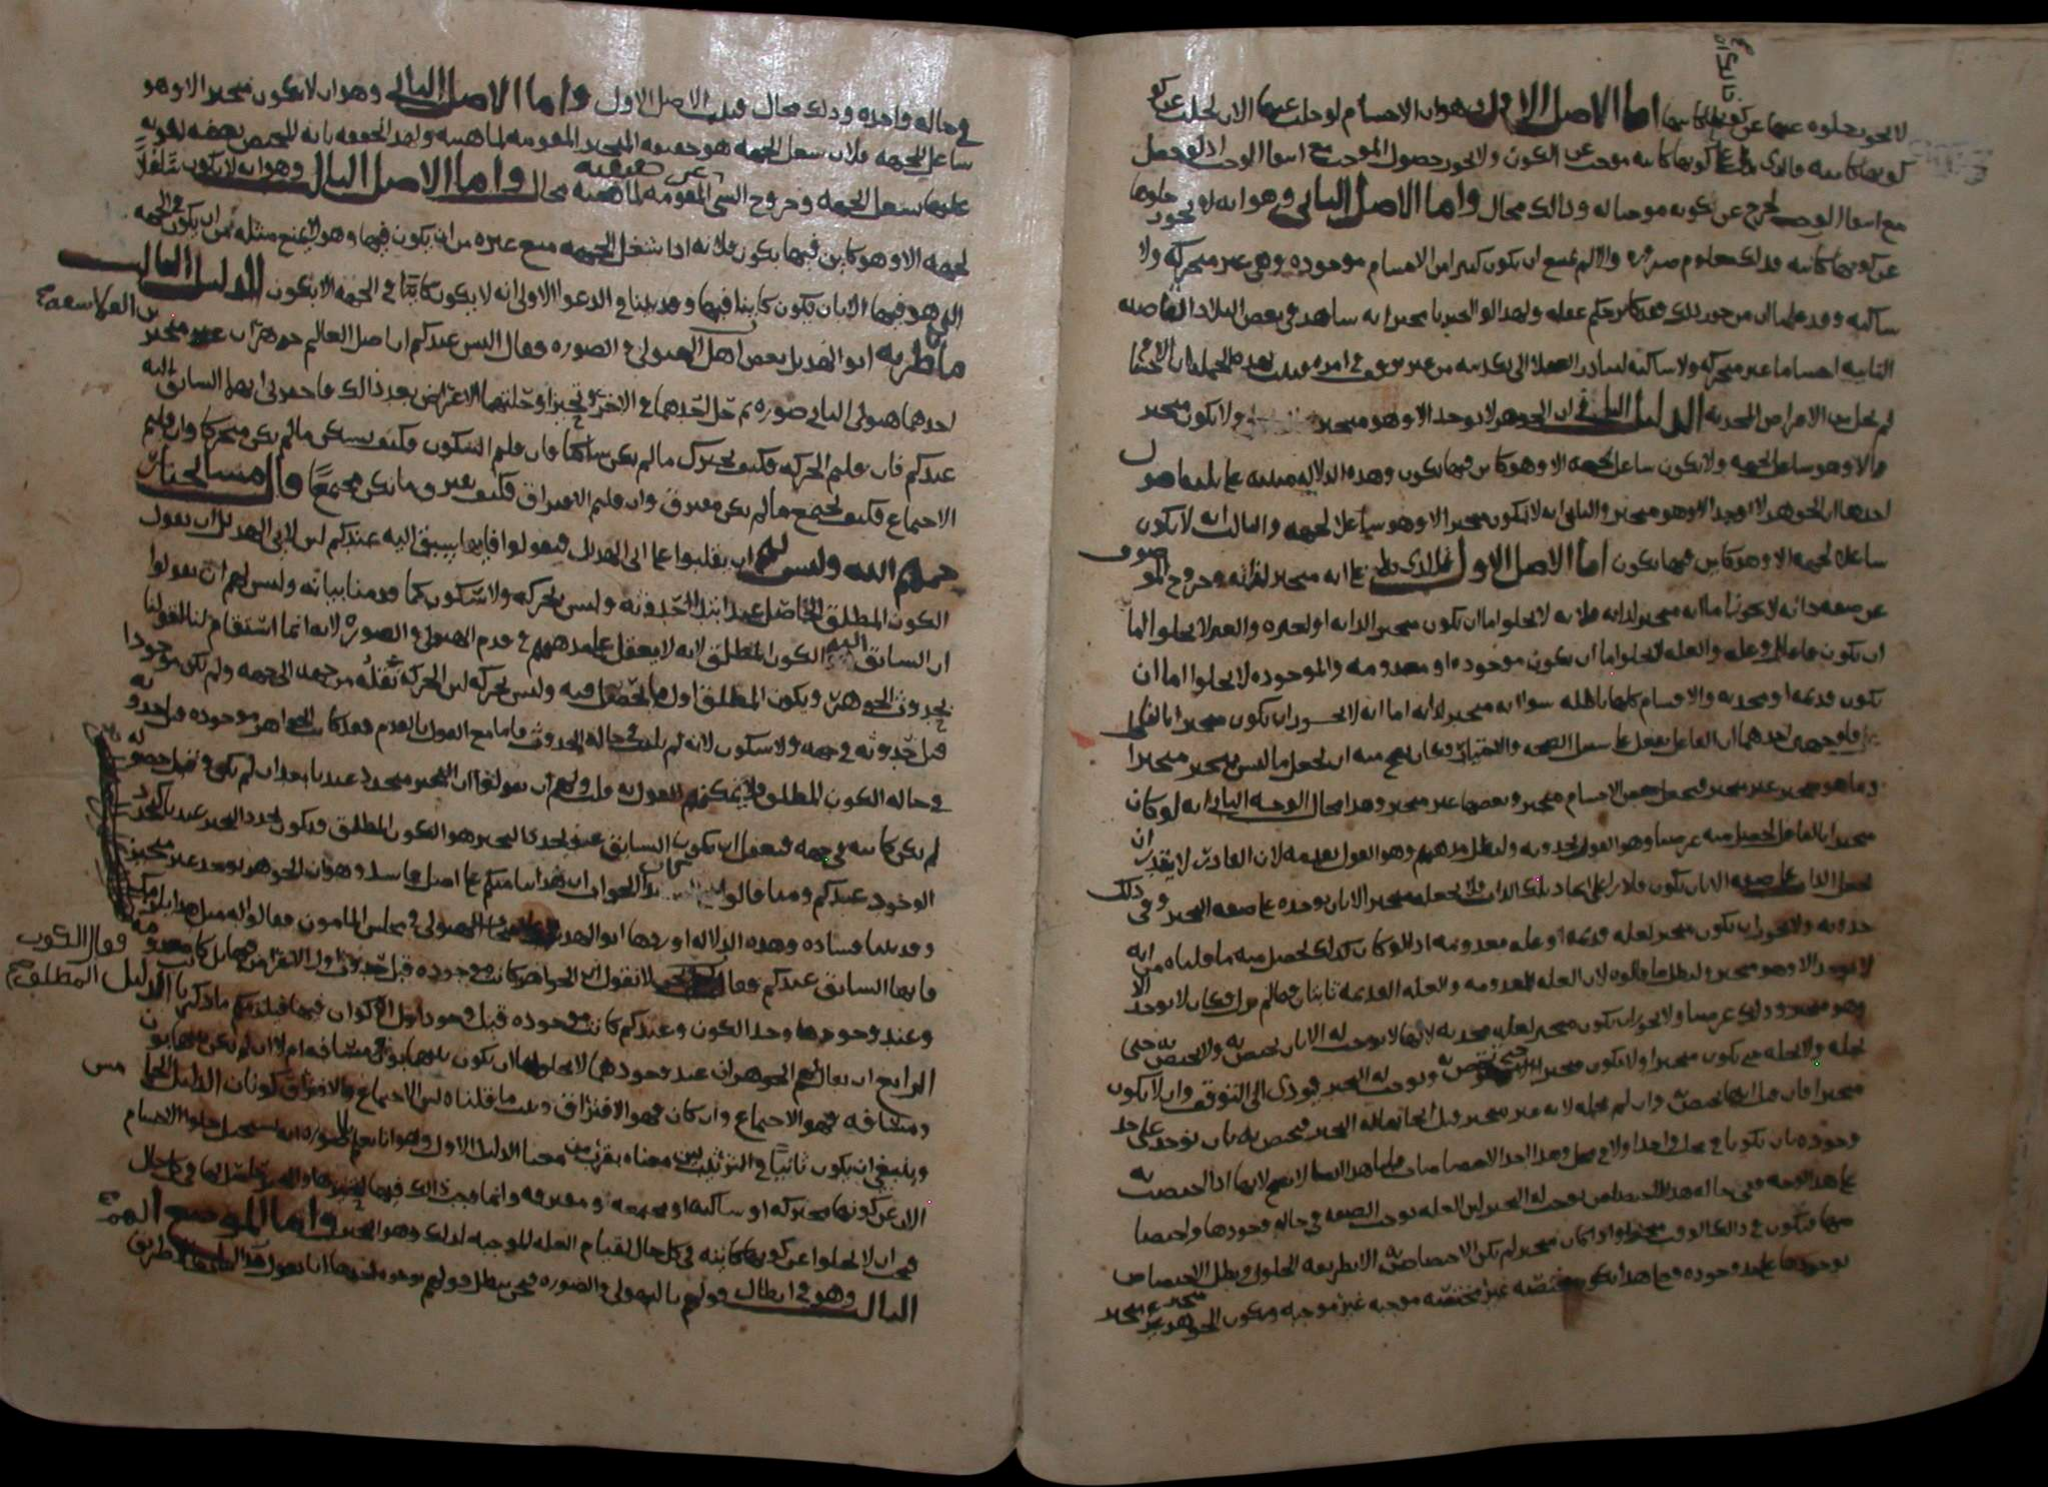 لا يجوز خلوه عنها عن كونها كائنة اما الاصل الاول وهو ان الاجسام لو خلت عنها الان لخلت عن كو
كونها كائنة فالذي يدل على كونها كائنة موجب عن الكون ولا يجوز حصول الموجب مع انتفا الموجب اذ لو حصل
مع انتفا الموجب لخرج عن كونه موجبا له وذلك محال واما الاصل الثاني وهو انه لا يجوز خلوها
عن كونها كائنة فذلك معلوم ضرورة والا لم يمتنع ان يكون كثير من الاجسام موجودة وهي غير متحركة ولا
ساكنة وقد علمنا ان من جوز ذلك فقد كابر حكم عقله ولهذا لو اخبرنا مخبر انه شاهد في بعض البلاد القاصية
النائية اجساما غير متحركة ولا ساكنة لبادر العقلا الى تكذيبه من غير توقف في امره فثبت بهذه الجملة ان الاجسام
لم تخل من الاعراض المحدثة الدليل الثاني ان الجوهر لا يوجد الا وهو متحيز ولا يكون متحيز
الا وهو شاغل للجهة ولا يكون شاغل لجهة الا وهو كائن فيها بكون وهذه الدلالة مبنية على ثلاثة اصول
احدها ان الجوهر لا يوجد الا وهو متحيز والثاني انه لا يكون متحيز الا وهو شاغلا لجهة والثالث انه لا يكون
شاغلا لجهة الا وهو كائن فيها بكون اما الاصل الاول فالذي يدل على انه متحيز لذاته وخروج الموصوف
عن صفة ذاته لا يجوز اما انه متحيز لذاته فلانه لا يخلوا اما ان يكون متحيز لذاته او لغيره والغير لا يخلوا اما
ان يكون فاعل او علة والعلة لا يخلوا اما ان تكون موجودة او معدومة والموجودة لا يخلوا اما ان
تكون قديمة او محدثة والاقسام كلها باطلة سوا انه متحيز لذاته اما انه لا يجوز ان يكون متحيزا بالفاعل
فلوجهين احدهما ان الفاعل يفعل على سبيل الصحة والاختيار وكان يصح منه ان يجعل ما ليس بمتحيز متحيزا
وما هو متحيز غير متحيز فيجعل بعض الاجسام متحيز وبعضها غير متحيز وهذا محال الوجه الثاني انه لو كان
متحيزا بالفاعل لحصل منه غرضنا وهو القول بحدوثه وليطل مذهبهم وهو القول بقدمه لان القادر لا يقدر ان
يجعل الذات على صفة الا بان يكون قادرا على ايجاد تلك الذات فلا يجعله متحيز الا بان يوجده على صفة التحيز وفي ذلك
حدوثه ولا يجوز ان يكون متحيز لعلة قديمة او علة معدومة اذ لو كان كذلك لحصل منه ما قلناه من انه
لا يوجد الا وهو متحيز وليطل ما قالوه لان العلة المعدومة والعلة القديمة ثابتان فيما لم يزل وكان لا يوجد الا
وهو متحيز وذلك غرضنا ولا يجوز ان يكون متحيز لعلة محدثة لانها لا توجب له الا بان تختص به ولا تختص به حتى
تحله ولا تحله حتى يكون متحيزا ولا يكون متحيز حتى تختص به وتوجب له التحيز فيؤدي الى التوقف وان لا يكون
متحيزا فان قيل انها تختص به وان لم تحله لانه غير متحيز قبل ايجابها له التحيز فتختص به بان توجد على حد
وجوده بان يكونا في محل واحد او لا في محل
على هذا الوجه ففي حالة هذا الاختصاص توجب له التحيز لان العلة توجب الصفة في حال وجودها واختصا
صها فيكون في ذلك الوقت متحيزا واذا كان متحيز لم يكن الاختصاص به الا بطريقة الحلول وبطل الاختصاص
بوجودها على حد وجوده وعلى هذا تكون مختصة غير مختصة موجبة غير موجبة ويكون الجوهر متحيز غير متحيز
في حالة واحدة وذلك محال فثبت الاصل الاول واما الاصل الثاني وهو ان لا يكون متحيز الا وهو
شاغل للجهة فلان شغل الجهة هو حقيقة المتحيز المقومة لماهيته ولهذا تحققه بانه المختص بصفة لكونه
عليها يشغل الجهة وخروج الشي عن حقيقته المقومة لماهيته محال واما الاصل الثالث وهو انه لا يكون شاغلا
لجهة الا وهو كائن فيها بكون فلانه اذا شغل الجهة منع غيره من ان يكون فيها وهو لا يمنع مثله من ان يكون في الجهة
التي هو فيها الا بان يكون كائنا فيها وقد بينا في الدعوا الاولى انه لا يكون كائنا في الجهة الا بكون الدليل الثالث
ما ناظر به ابو الهذيل بعض اهل الهيولى والصورة فقال اليس عندكم ان اصل العالم جوهران غير متحيزين
من الفلاسفة
احدهما هيولى والثاني صورة ثم حل احدهما في الاخر وتحيزا وحلتهما الاعراض بعد ذلك فاخبروني ايها السابق اليه
عندكم فان قلتم الحركة فكيف يتحرك ما لم يكن ساكنا وان قلتم السكون فكيف يسكن ما لم يكن متحركا وان قلتم
الاجتماع فكيف يجتمع ما لم يكن مفترق وان قلتم الافتراق فكيف يفترق ما لم يكن مجتمعا قال مشايخنا
رحمهم الله وليس لهم ان يقلبوا على ابي الهذيل فيقولوا فايها يسبق اليه عندكم لان لابي الهذيل ان يقول
الكون المطلق الحاصل عند ابتداء حدوثه وليس بحركة ولا سكون كما قدمنا بيانه وليس لهم ان يقولوا
ان السابق اليه الكون المطلق لانه لا يعقل على مذهبهم في قدم الهيولى والصورة لانه انما استقام لنا لقولنا
بحدوث الجوهر ويكون المطلق اول ما يحصل فيه وليس بحركة لان الحركة نقله من جهة الى جهة ولم يكن موجودا
قبل حدوثه في جهة ولا سكون لانه لم يلبث في حالة الحدوث فاما مع القول بالقدم فقد كانت الجواهر موجودة قبل حدوثه
في حالة الكون المطلق فلا يمكنهم القول به فان قيل لهم ان يقولوا ان التحيز متجدد عندنا بعد ان لم يكن وقبل حصوله
لم تكن كائنة في جهة فيعقل ان يكون السابق عند تجدد التحيز هو الكون المطلق ويكون تجدد التحيز عندنا كتجدد
الوجود عندكم ومما قالوا الجواب ان هذا بنا منكم على اصل فاسد وهو ان الجوهر يوجد غير متحيز
وقد بينا فساده وهذه الدلالة اوردها ابو الهذيل الهيولى في مجلس المامون فقالوا له مثل هذا يلزمكم
فايها السابق عندكم فقال لا نقول ان الجواهر كانت موجودة قبل حدوث الاعراض فيها بل كانت معدومة
فقال الكون المطلق
وعند وجودها وجد الكون وعندكم كانت موجودة قبل وجود الاكوان فيها فيلزمكم ما ذكرنا الدليل
الرابع ان يقال لهم الجوهران عند وجودهما لا يخلوا اما ان يكون بينهما بون ومسافة ام لا فان لم يكن بينهما بون
ومسافة فهو الاجتماع وان كان فهو الافتراق وثبت ما قلناه لان الاجتماع والافتراق كونان الدليل الخامس
وينبغي ان يكون ثانيا في الترتيب لان معناه بقرب من معنا الدليل الاول وهو انا نعلم ضرورة انه يستحيل خلوا الاجسام
الان عن كونها متحركة او ساكنة او مجتمعة او مفترقة وانما وجب ذلك فيها لتحيزها والتحيز حاصل لها في كل حال
فيجب ان لا يخلوا عن كونها كائنة في كل حال لقيام العلة الموجبة لذلك وهو التحيز واما الموضع
الثالث وهو في ابطال قولهم بالهيولى والصورة فنحن نبطل قولهم بوجوه احدها انا نقول هذا اثبات ما لا طريق